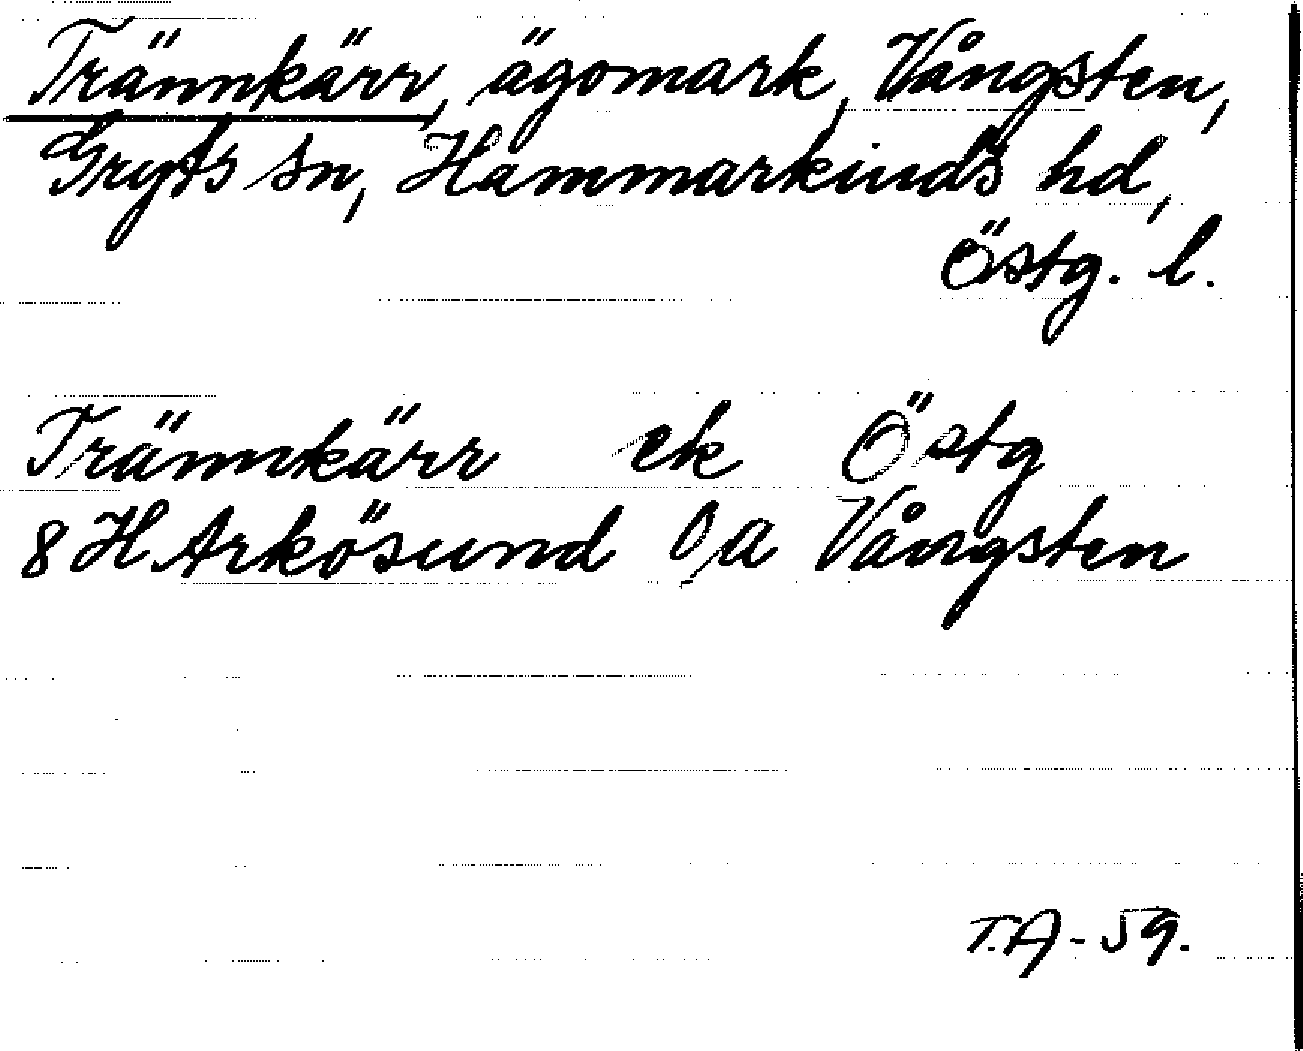 Trännkärr, ägomark, Vångsten,
Gryts sn, Hammarkinds hd,
Östg. l.
Trännkärr ek Östg
8 H Arkösund O/a Vångsten
T.A-59.